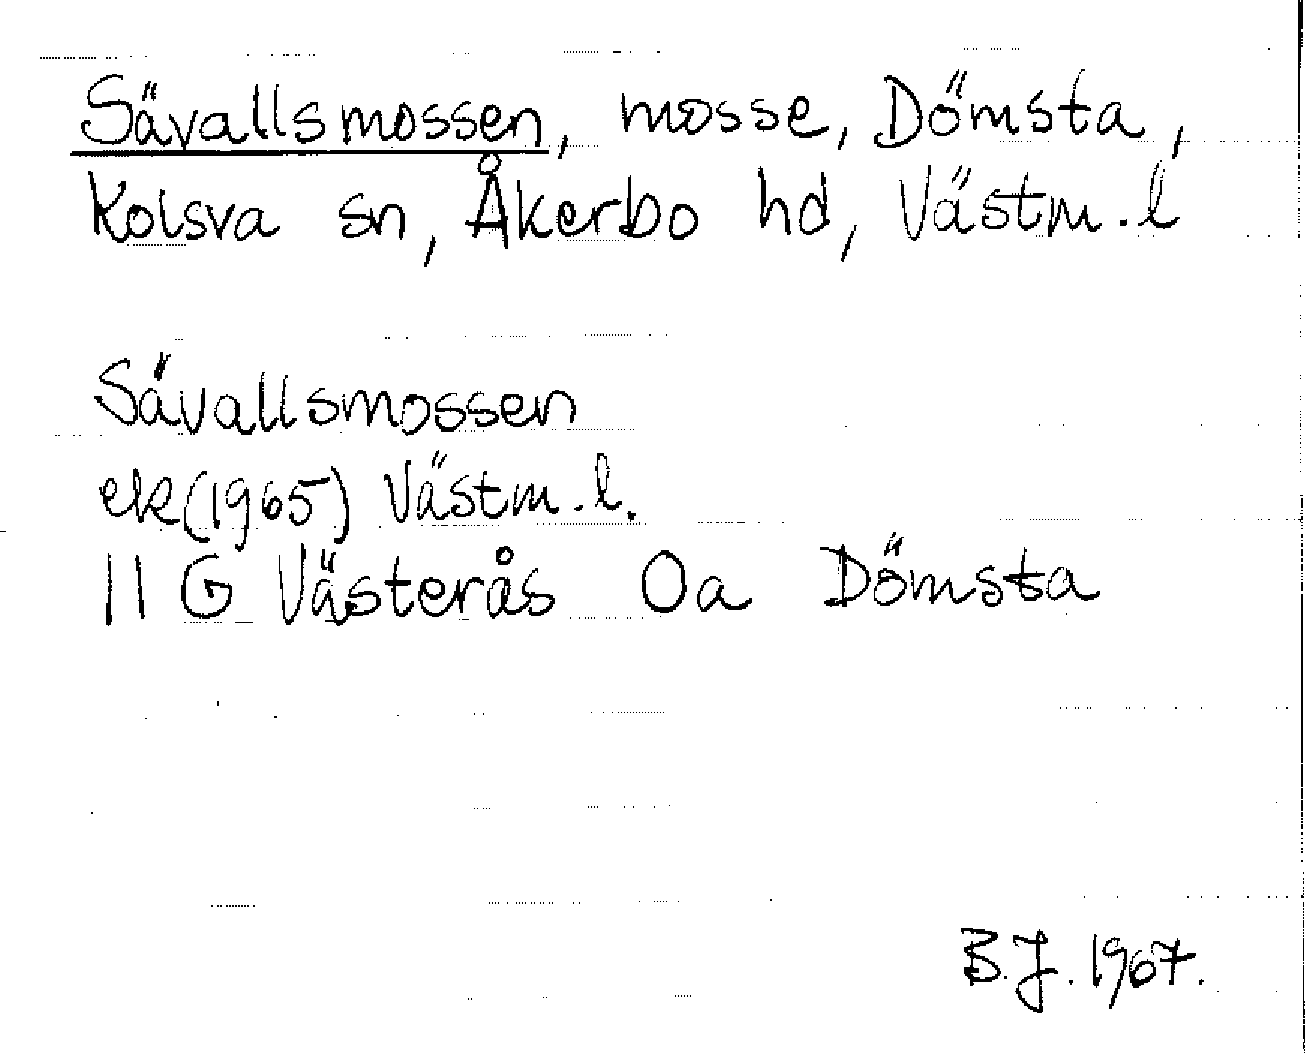 Sävallsmossen, mosse, Dömsta,
Kolsva sn, Åkerbo hd, Västm. l
Sävallsmossen
ek(1965) Västm. l.
11 G Västerås Oa Dömsta
B.J. 1967.